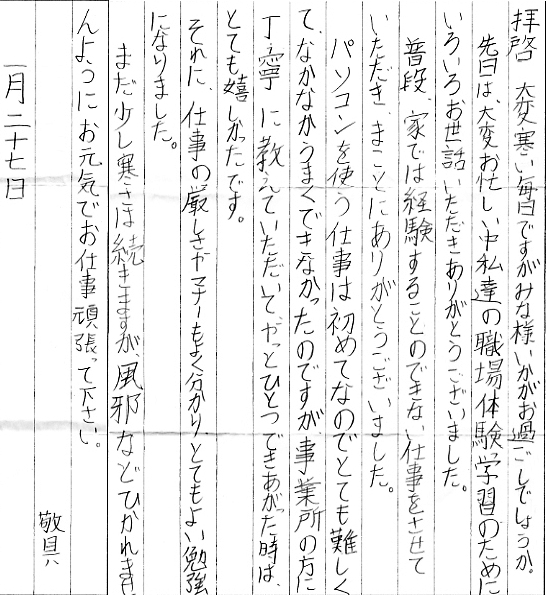 拝啓　大変寒い毎日ですがみな様いかがお過ごしでしょうか。
先日は、大変お忙しい中私達の職場体験学習のために
いろいろお世話いただきありがとうございました。
普段、家では経験することのできない仕事をさせて
いただき、まことにありがとうございました。
パソコンを使う仕事は初めてなのでとても難しく
て、なかなかうまくできなかったのですが、事業所の方に
丁寧に教えていただいて、やっとひとつできあがった時は、
とても嬉しかったです。
それに、仕事の厳しさやマナーもよく分かり、とてもよい勉強
になりました。
まだ少し寒さは続きますが、風邪などひかれませ
んようにお元気でお仕事頑張って下さい。
敬具
一月二十七日